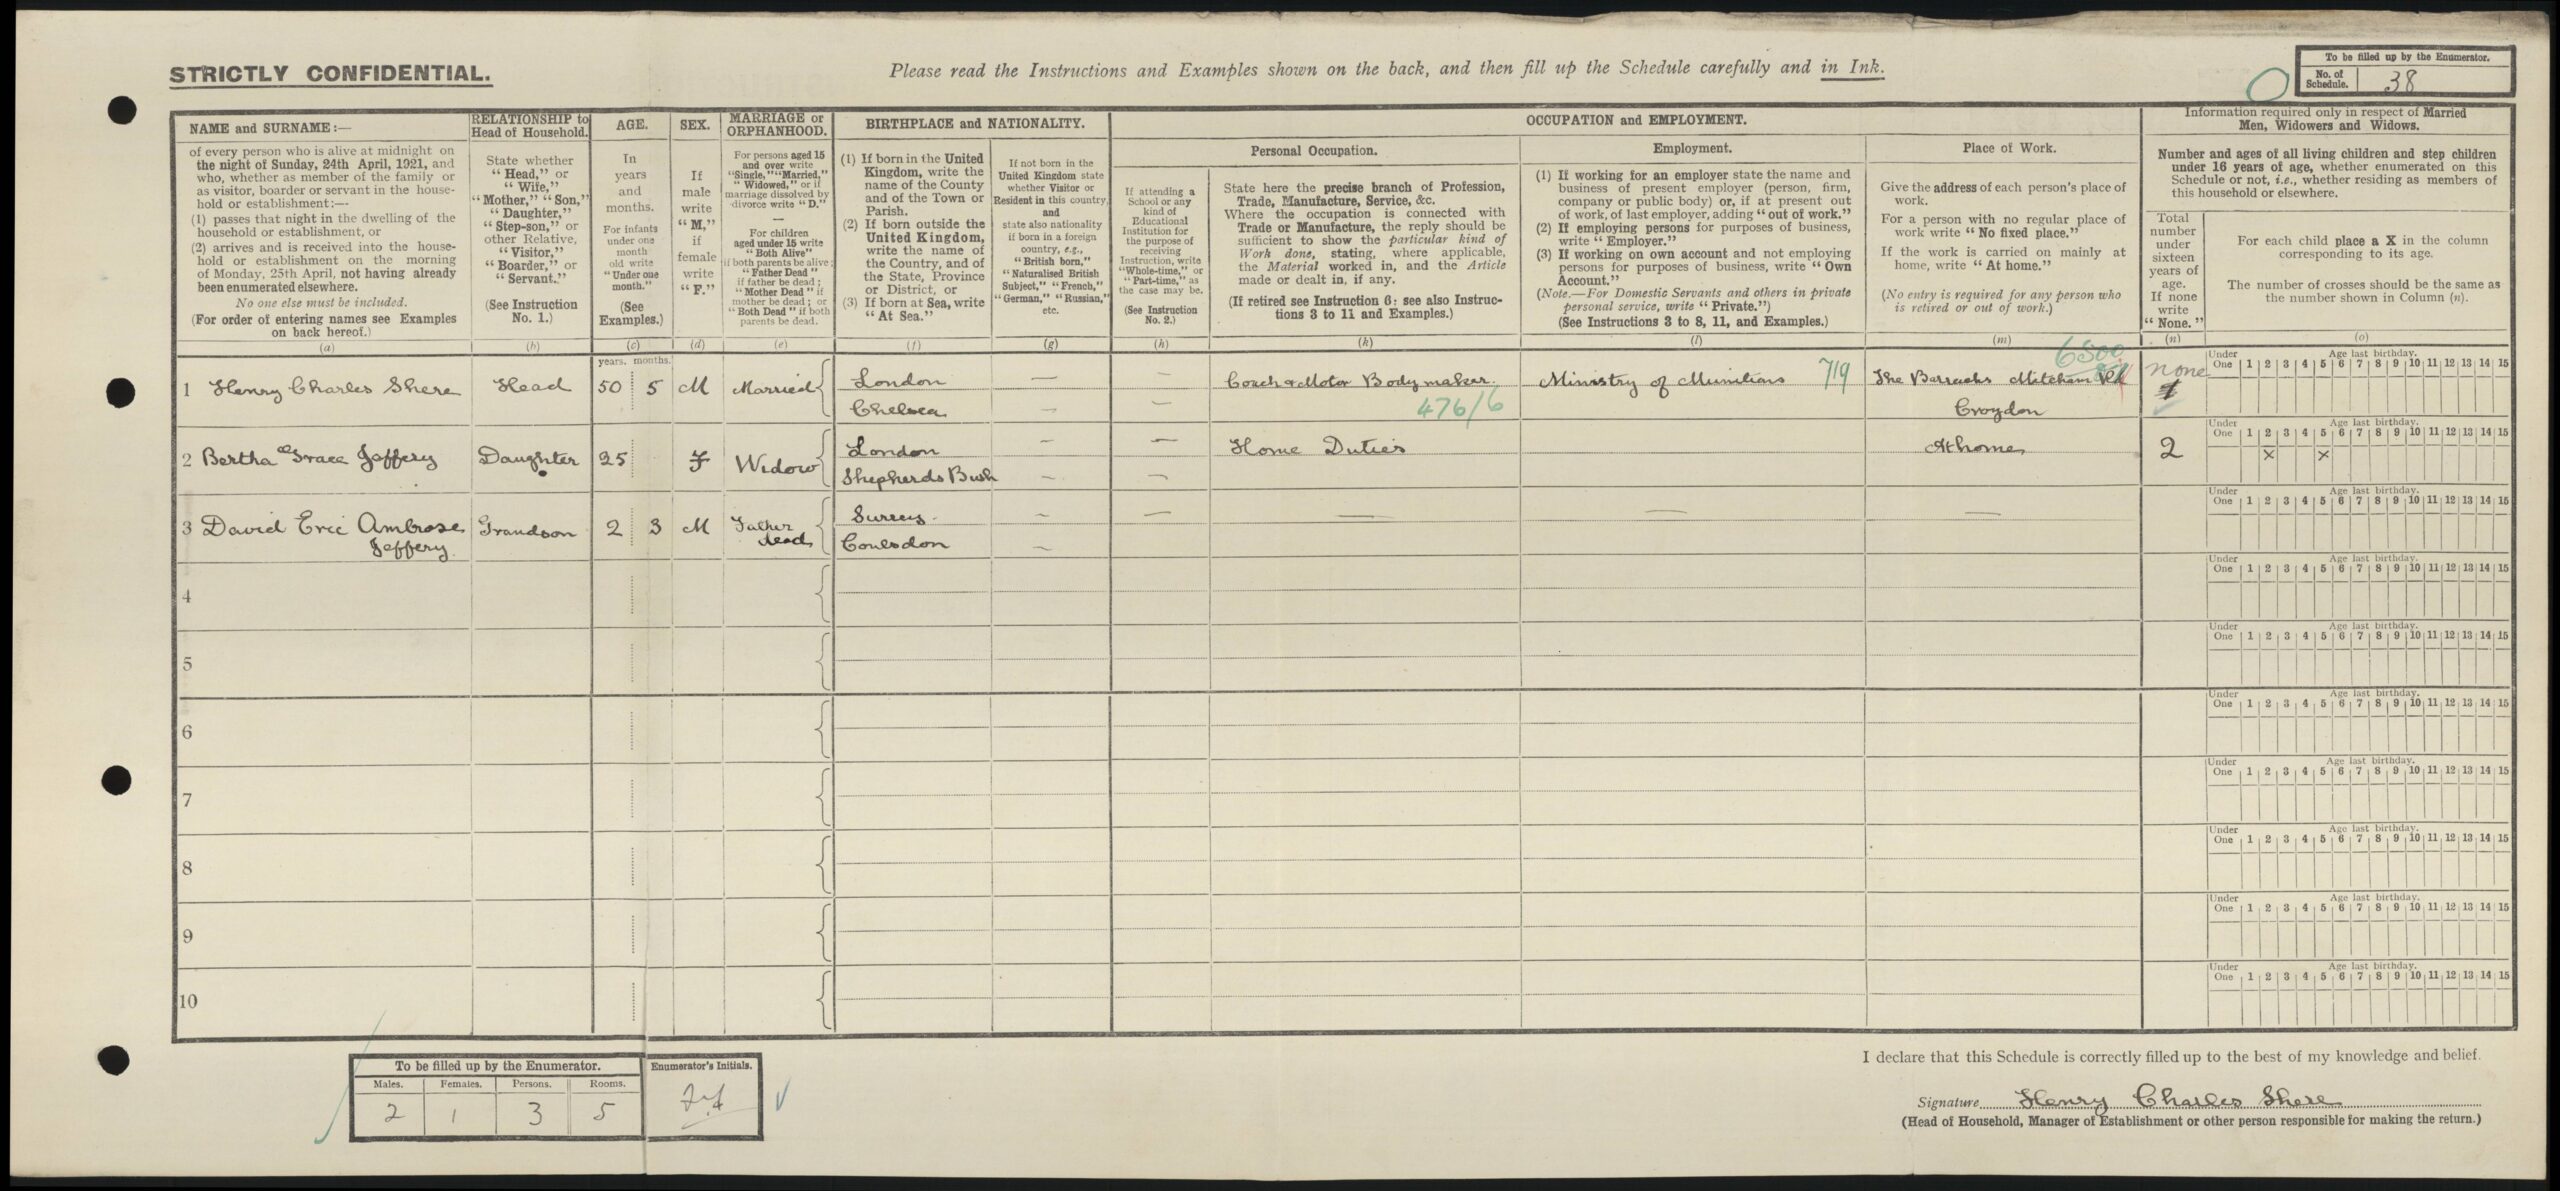 STRICTLY CONFIDENTIAL.
Please read the Instructions and Examples shown on the back, and then fill up the Schedule carefully and in Ink.
To be filled up by the Enumerator.
No. of Schedule. 38
NAME and SURNAME:—
of every person who is alive at midnight on
the night of Sunday, 24th April, 1921, and
who, whether as member of the family or
as visitor, boarder or servant in the house-
hold or establishment:—
(1) passes that night in the dwelling of the
household or establishment, or
(2) arrives and is received into the house-
hold or establishment on the morning
of Monday, 25th April, not having already
been enumerated elsewhere.
No one else must be included.
(For order of entering names see Examples
on back hereof.)
(a)
RELATIONSHIP to
Head of Household.
State whether
"Head," or
"Wife,"
"Mother," "Son,"
"Daughter,"
"Step-son," or
other Relative,
"Visitor,"
"Boarder," or
"Servant."
(See Instruction
No. 1.)
(b)
AGE.
In
years
and
months.
For infants
under one
month
old write
"Under one
month."
(See
Examples.)
(c)
SEX.
If
male
write
"M,"
if
female
write
"F."
(d)
MARRIAGE or
ORPHANHOOD.
For persons aged 15
and over write
"Single," "Married,"
"Widowed," or if
marriage dissolved by
divorce write "D."
—
For children
aged under 15 write
"Both Alive"
if both parents be alive;
"Father Dead"
if father be dead;
"Mother Dead" if
mother be dead; or
"Both Dead" if both
parents be dead.
(e)
BIRTHPLACE and NATIONALITY.
(1) If born in the United
Kingdom, write the
name of the County
and of the Town or
Parish.
(2) If born outside the
United Kingdom,
write the name of
the Country, and of
the State, Province
or District, or
(3) If born at Sea, write
"At Sea."
(f)
If not born in the
United Kingdom state
whether Visitor or
Resident in this country,
and
state also nationality
if born in a foreign
country, e.g.,
"British born,"
"Naturalised British
Subject," "French,"
"German," "Russian,"
etc.
(g)
OCCUPATION and EMPLOYMENT.
Personal Occupation.
If attending a
School or any
kind of
Educational
Institution for
the purpose of
receiving
Instruction, write
"Whole-time," or
"Part-time," as
the case may be.
(See Instruction
No. 2.)
(h)
State here the precise branch of Profession,
Trade, Manufacture, Service, &c.
Where the occupation is connected with
Trade or Manufacture, the reply should be
sufficient to show the particular kind of
Work done, stating, where applicable,
the Material worked in, and the Article
made or dealt in, if any.
(If retired see Instruction 6: see also Instruc-
tions 3 to 11 and Examples.)
(k)
Employment.
(1) If working for an employer state the name and
business of present employer (person, firm,
company or public body) or, if at present out
of work, of last employer, adding "out of work."
(2) If employing persons for purposes of business,
write "Employer."
(3) If working on own account and not employing
persons for purposes of business, write "Own
Account."
(Note.—For Domestic Servants and others in private
personal service, write "Private.")
(See Instructions 3 to 8, 11, and Examples.)
(l)
Place of Work.
Give the address of each person's place of
work.
For a person with no regular place of
work write "No fixed place."
If the work is carried on mainly at
home, write "At home."
(No entry is required for any person who
is retired or out of work.)
(m)
Information required only in respect of Married
Men, Widowers and Widows.
Number and ages of all living children and step children
under 16 years of age, whether enumerated on this
Schedule or not, i.e., whether residing as members of
this household or elsewhere.
Total
number
under
sixteen
years of
age.
If none
write
"None."
(n)
For each child place a X in the column
corresponding to its age.
The number of crosses should be the same as
the number shown in Column (n).
(o)
years. months.
1 Henry Charles Shere Head 50 5 M Married London — — Coach & Motor Bodymaker. Ministry of Munitions 719 The Barracks Mitcham Rd 6500 none
Chelsea — — 476/6 Croydon
Under One Age last birthday. 1 2 3 4 5 6 7 8 9 10 11 12 13 14 15
2 Bertha Grace Jeffery Daughter 25 F Widow London — — Home Duties At home 2
Shepherds Bush — —
Under One Age last birthday. 1 2 3 4 5 6 7 8 9 10 11 12 13 14 15
x x
3 David Eric Ambrose Grandson 2 3 M Father Surrey — — — — —
Jeffery. dead Coulsdon —
Under One Age last birthday. 1 2 3 4 5 6 7 8 9 10 11 12 13 14 15
4
Under One Age last birthday. 1 2 3 4 5 6 7 8 9 10 11 12 13 14 15
5
Under One Age last birthday. 1 2 3 4 5 6 7 8 9 10 11 12 13 14 15
6
Under One Age last birthday. 1 2 3 4 5 6 7 8 9 10 11 12 13 14 15
7
Under One Age last birthday. 1 2 3 4 5 6 7 8 9 10 11 12 13 14 15
8
Under One Age last birthday. 1 2 3 4 5 6 7 8 9 10 11 12 13 14 15
9
Under One Age last birthday. 1 2 3 4 5 6 7 8 9 10 11 12 13 14 15
10
Under One Age last birthday. 1 2 3 4 5 6 7 8 9 10 11 12 13 14 15
To be filled up by the Enumerator.
Males. Females. Persons. Rooms.
2 1 3 5
Enumerator's Initials.
I declare that this Schedule is correctly filled up to the best of my knowledge and belief.
Signature Henry Charles Shere
(Head of Household, Manager of Establishment or other person responsible for making the return.)